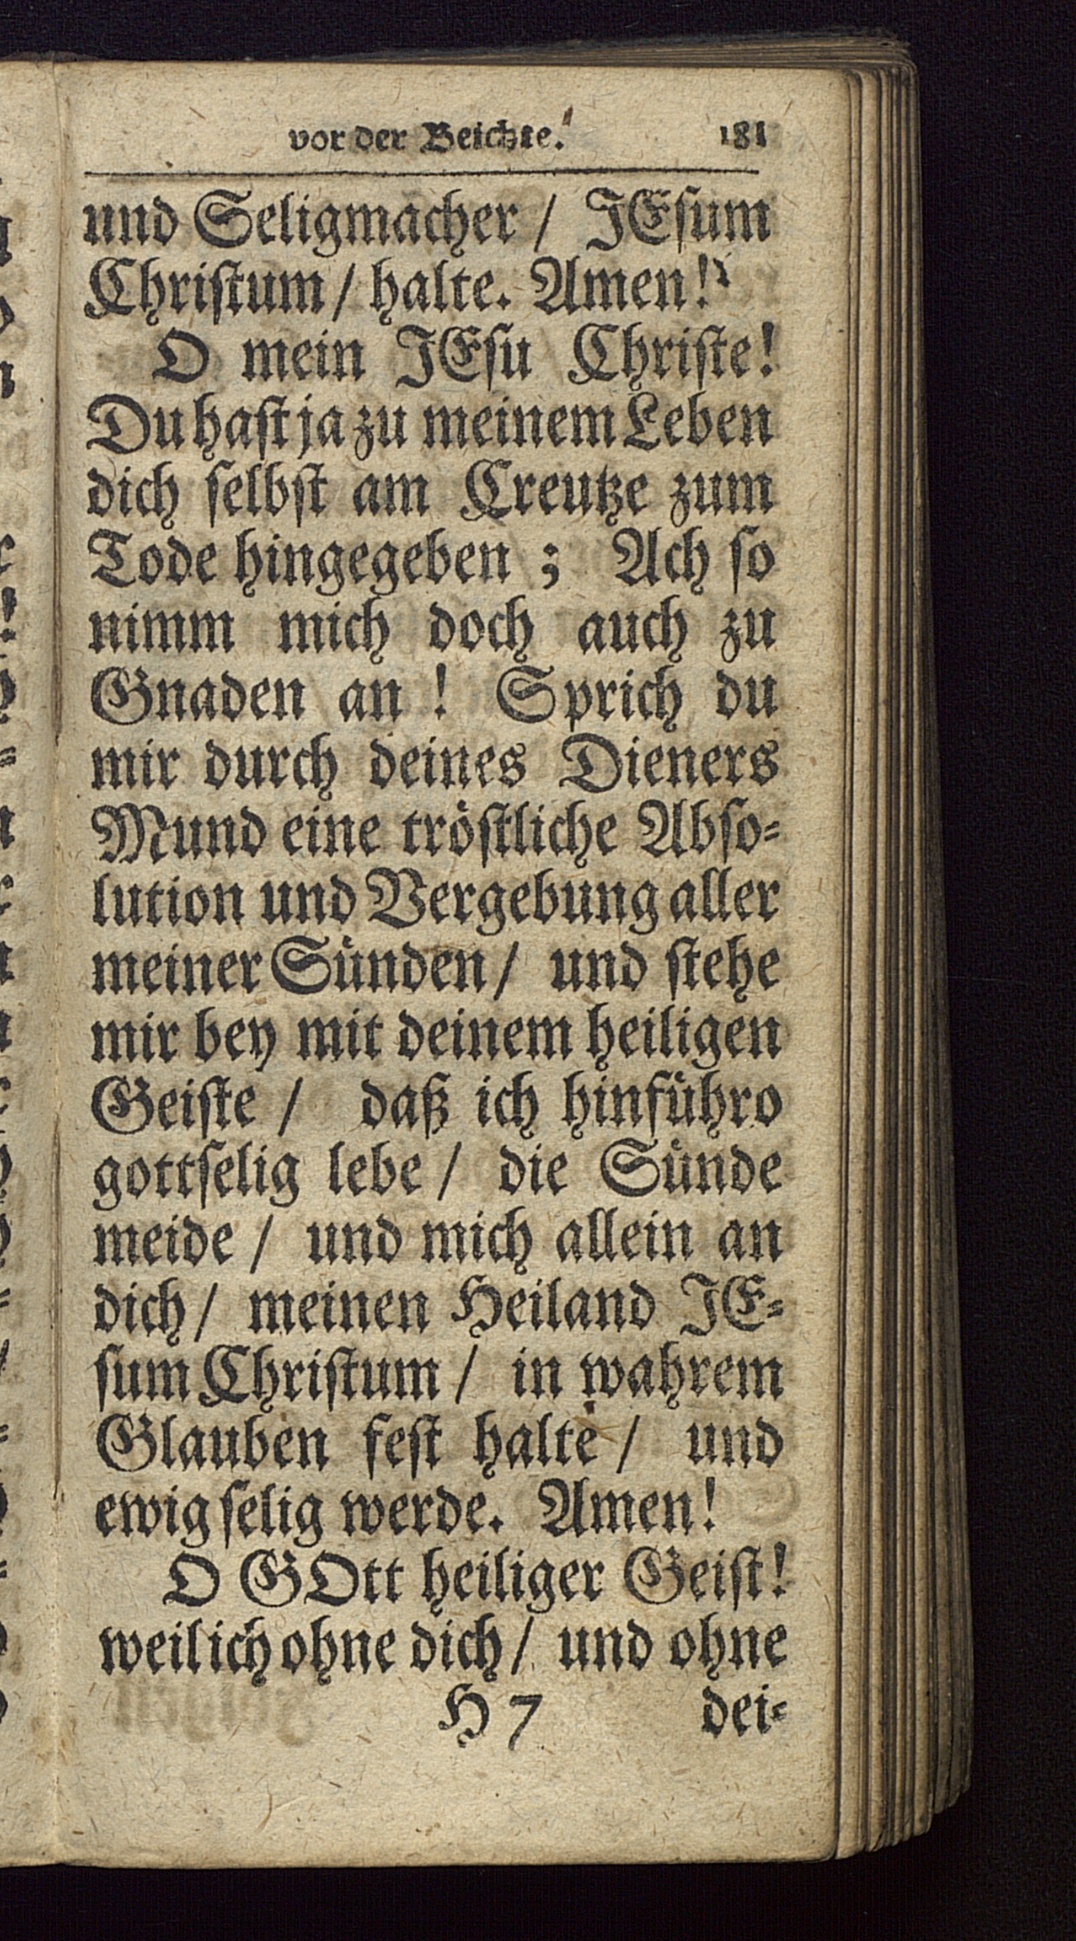 vor der Beichte. 181
und Seligmacher / JEsum
Christum / halte. Amen!
O mein JEsu Christe!
Du hast ja zu meinem Leben
dich selbst am Creutze zum
Tode hingegeben ; Ach so
nimm mich doch auch zu
Gnaden an ! Sprich du
mir durch deines Dieners
Mund eine tröstliche Abso-
lution und Vergebung aller
meiner Sünden / und stehe
mir bey mit deinem heiligen
Geiste / daß ich hinführo
gottselig lebe / die Sünde
meide / und mich allein an
dich / meinen Heiland JE-
sum Christum / in wahrem
Glauben fest halte / und
ewig selig werde. Amen!
O GOtt heiliger Geist!
weil ich ohne dich / und ohne
H 7 dei-